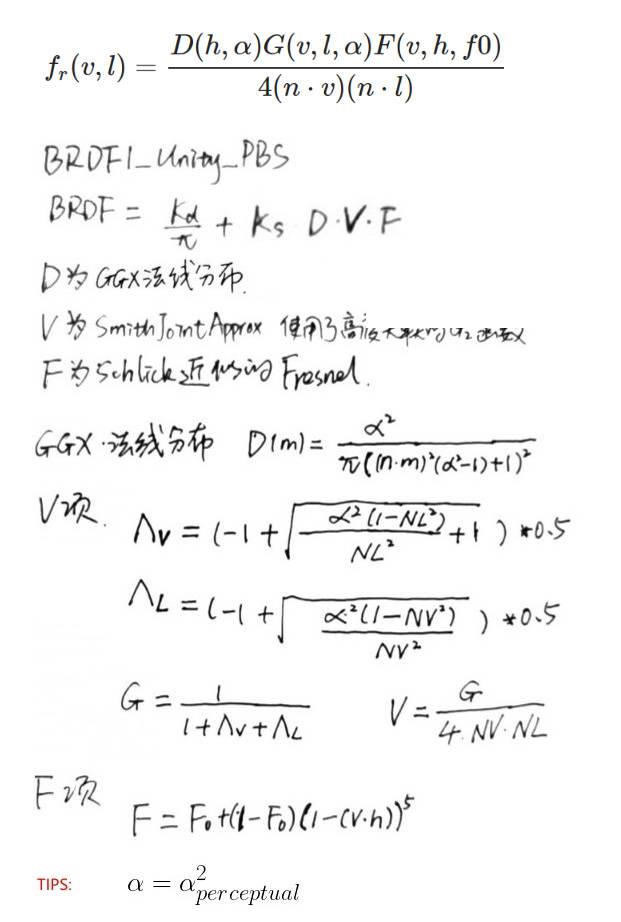 f_r(v, l) = \frac{D(h, α)G(v, l, α)F(v, h, f0)}{4(n · v)(n · l)}
BRDF1_Unity_PBS
BRDF = \frac{Kd}{π} + Ks D·V·F
D为GGX法线分布
V为SmithJointApprox 使用了高
F为Schlick近似的Fresnel.
GGX·法线分布 D(m) = \frac{α²}{π((n·m)²(α²-1)+1)²}
V项. Λv = (-1 + \sqrt{\frac{α²(1-NL²)}{NL²} + 1}) *0.5
ΛL = (-1 + \sqrt{\frac{α²(1-NV²)}{NV²}}) *0.5
G = \frac{1}{1+Λv+ΛL} V = \frac{G}{4·NV·NL}
F项
F = F₀+(1-F₀)(1-(v·h))⁵
TIPS: α = α²_{perceptual}